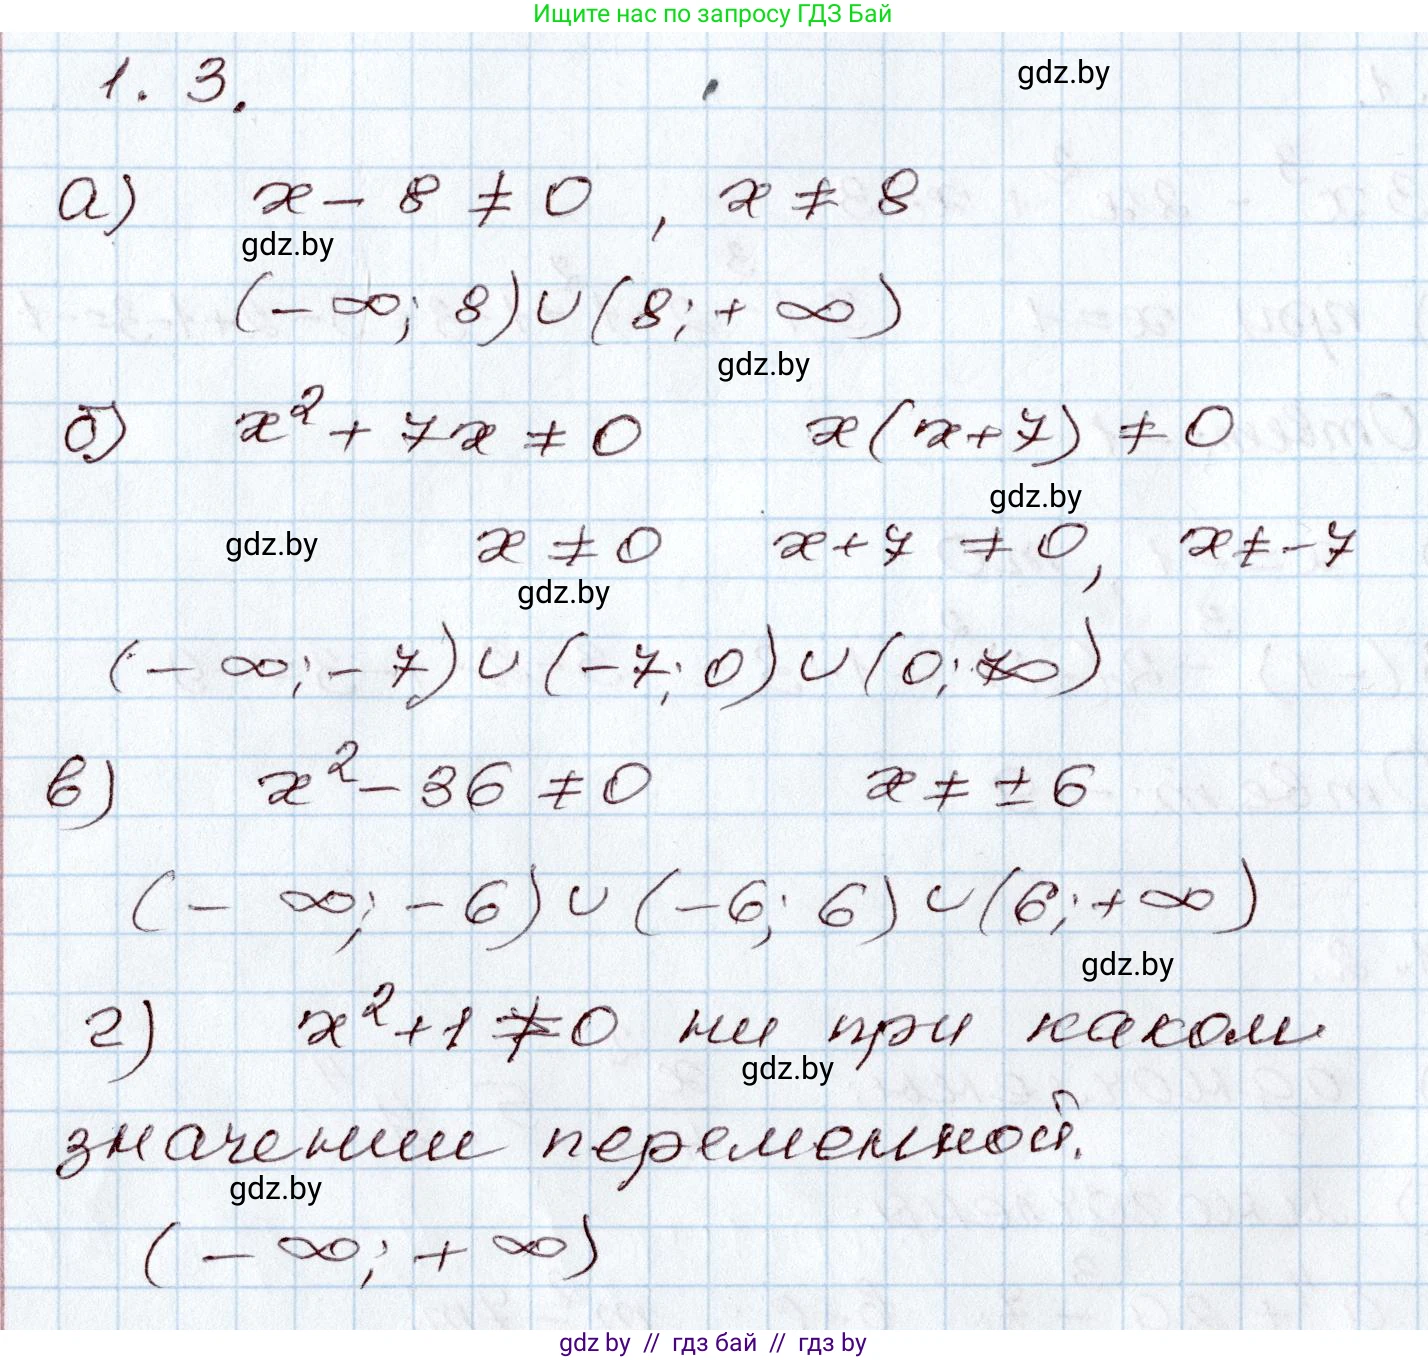 Ищите нас по запросу ГДЗ Бай
1.3.
gdz.by
а) x - 8 ≠ 0, x ≠ 8
gdz.by
(-∞; 8)∪(8; +∞)
gdz.by
б) x² + 7x ≠ 0 x(x+7) ≠ 0
gdz.by
gdz.by x ≠ 0 x+7 ≠ 0, x ≠ -7
gdz.by
(-∞; -7)∪(-7; 0)∪(0; ∞)
в) x² - 36 ≠ 0 x ≠ ±6
(-∞; -6)∪(-6; 6)∪(6; +∞)
gdz.by
г) x² + 1 ≠ 0 ни при каком
gdz.by
значении переменной.
gdz.by
(-∞; +∞)
gdz.by // гдз бай // gdz.by